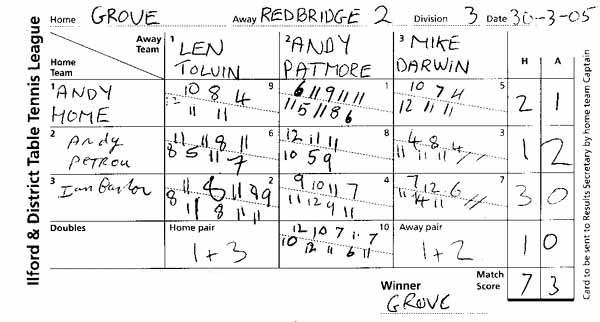 Ilford & District Table Tennis League
Home GROVE Away REDBRIDGE 2 Division 3 Date 30-3-05
Away Team
Home Team
1 LEN TOLVIN
2 ANDY PATMORE
3 MIKE DARWIN
H A
1 ANDY HOME
9
10 8 4
12 11 11
1
6 11 9 11 11
11 5 11 8 6
5
10 7 4
12 11 11
2 1
2 Andy PETROU
6
11 11 8 11
8 5 11 7
8
12 11 11
10 5 9
3
4 8 4
11 11 11
1 2
3 Ian
2
8 11 6 11 9
11 8 11 11
4
9 10 11 7
11 12 9 11
7
7 12 6
11 14 11
3 0
Doubles
Home pair
1 + 3
10
12 10 7 11 7
10 12 11 6 11
Away pair
1 + 2
1 0
Winner
GROVE
Match Score
7 3
Card to be sent to Results Secretary by home team Captain